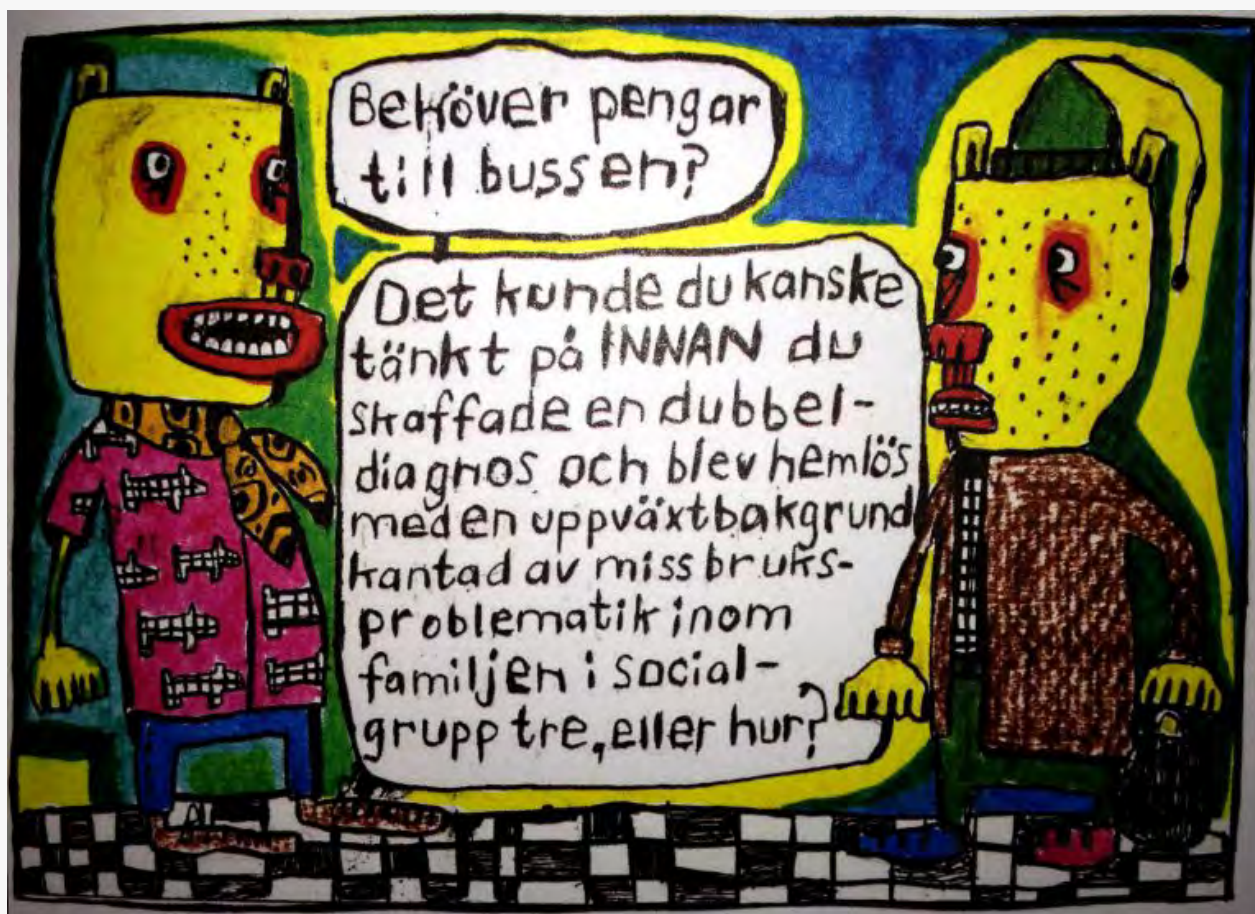 Behöver pengar
till bussen?
Det kunde du kanske
tänkt på INNAN du
skaffade en dubbel-
diagnos och blev hemlös
med en uppväxtbakgrund
kantad av missbruks-
problematik inom
familjen i social-
grupp tre, eller hur?